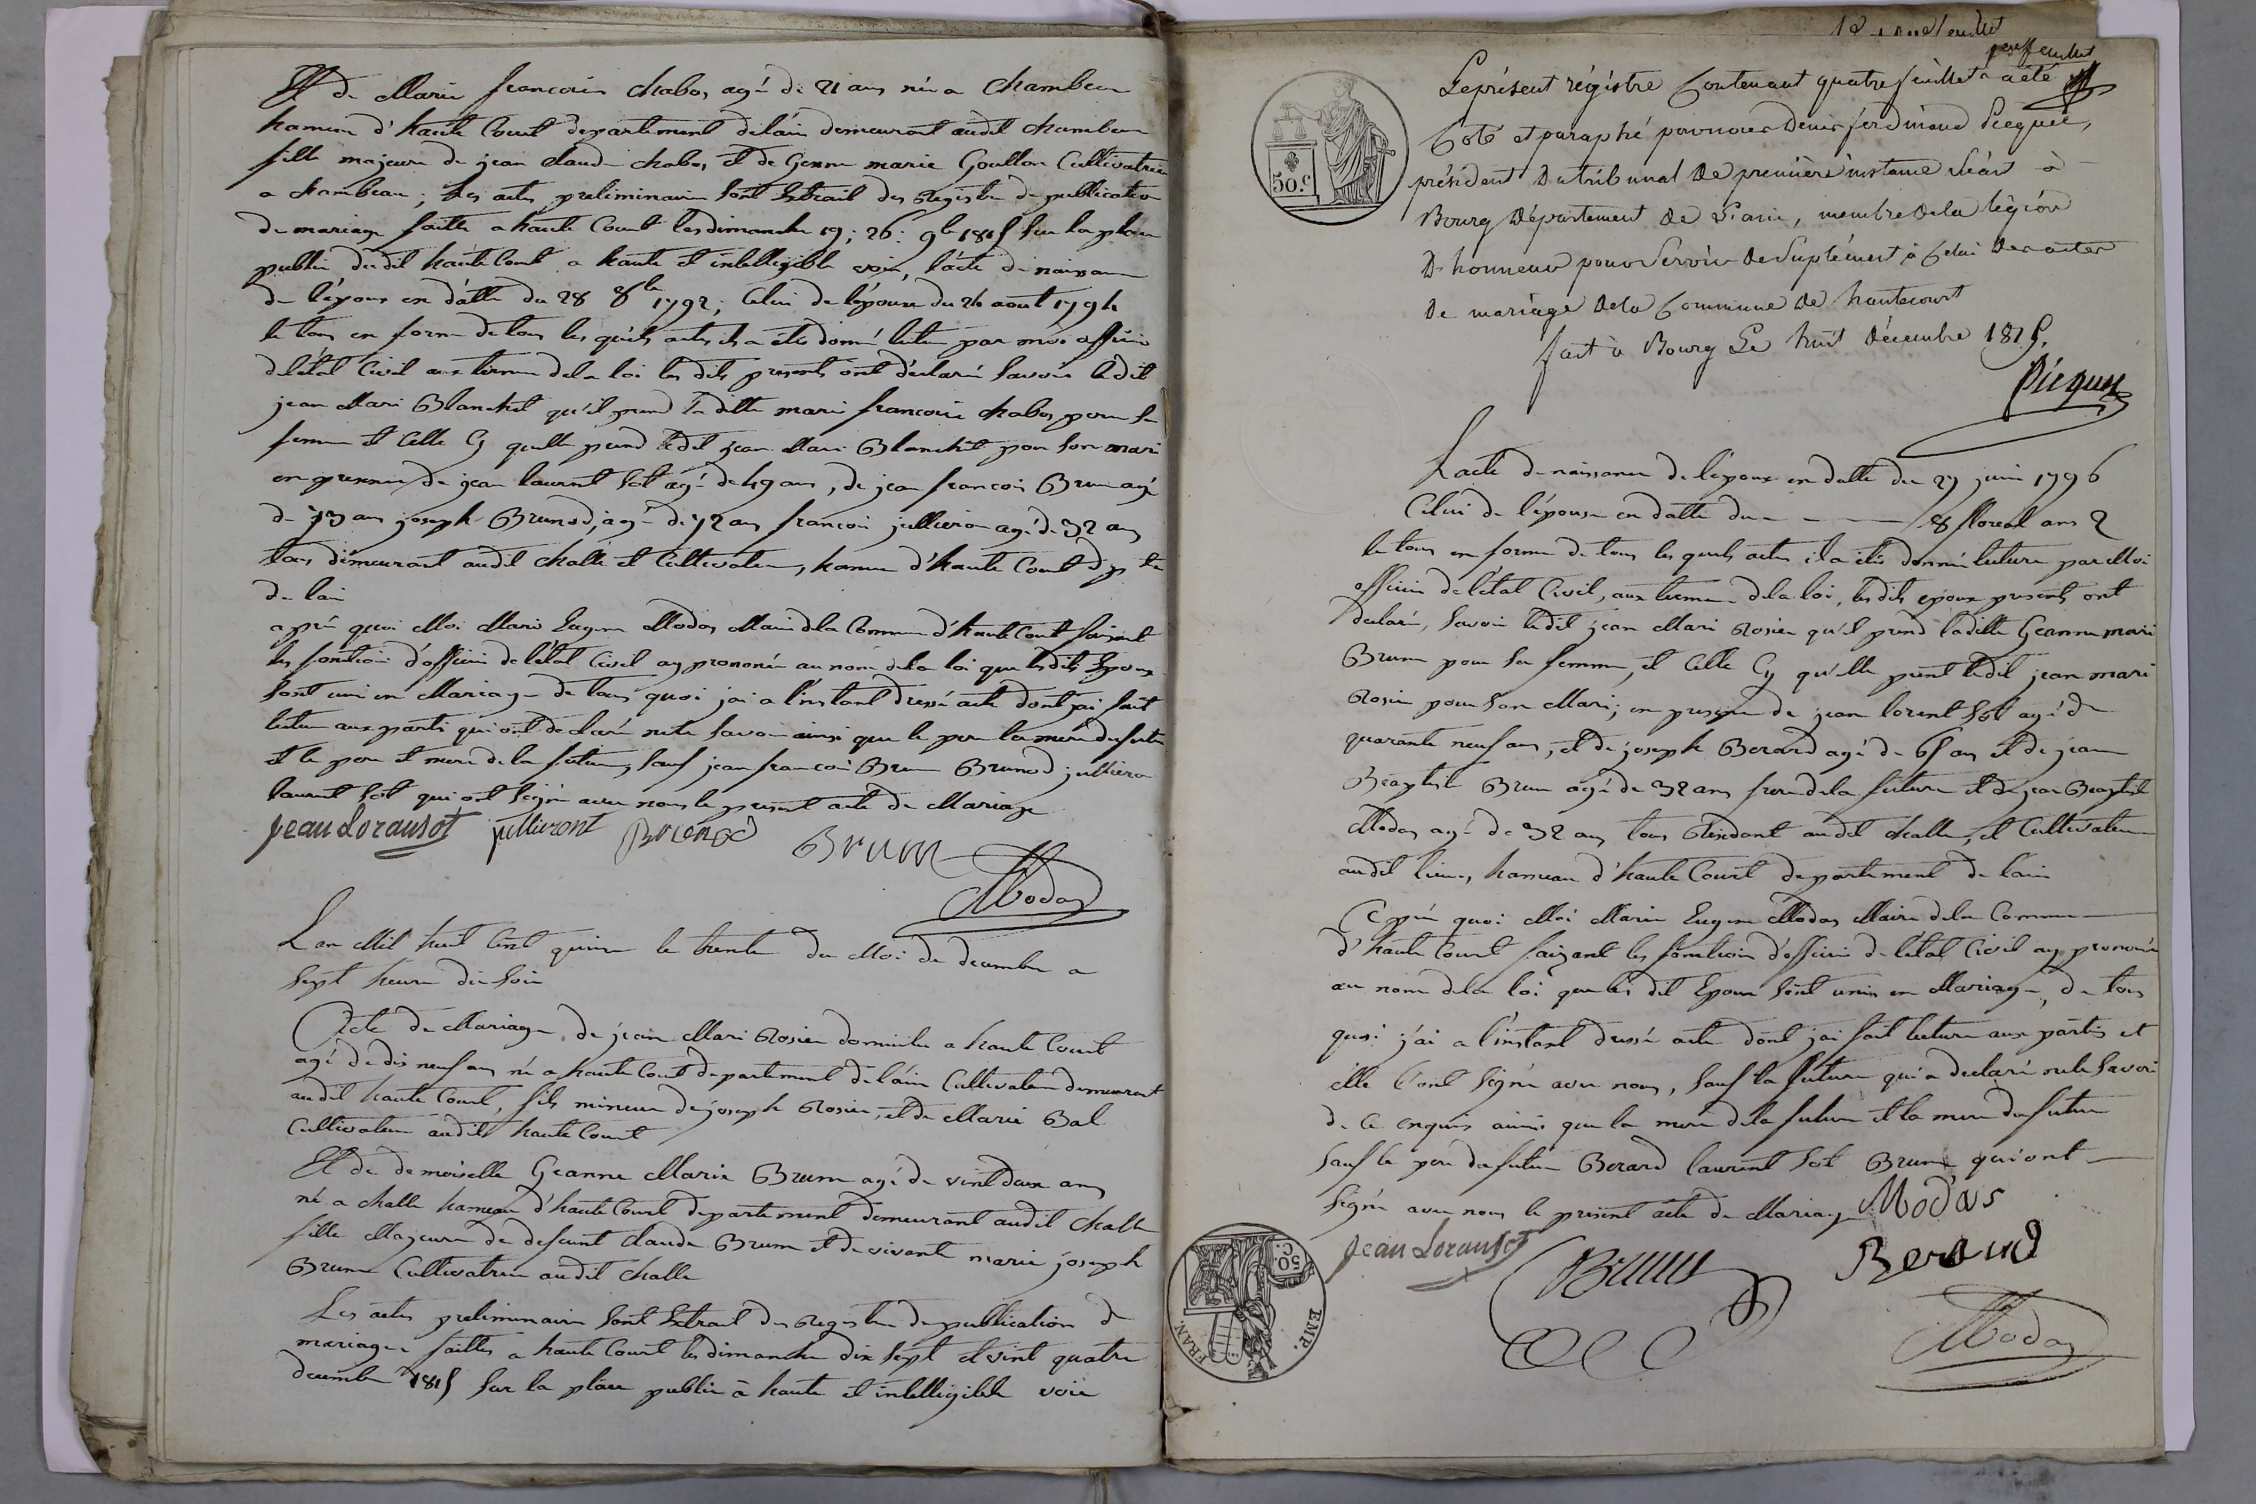 Et de Marie françoise chabos agé de 21 ans née a Chambeau
hameau d'haute Court departement de lain demeurant audit chambeau
fille majeure de jean claude chabos et de Genne marie Goullon Cultivatrice
a chambeau ; les actes preliminaire sont Extrait des Registre de publication
de mariage faitte a haute Court les dimanche 19 ; 26 : 9bre 1815 sur la place
public du dit haute Court a haute et intelligible voix, l'acte de naissance
de l'epoux en datte du 28 8bre 1792 ; Celui de l'epouse du 26 aout 1794
le tous en forme de tous les quels actes il a été donné lecture par moi officier
de l'état Civil aux terme de la loi les dits presents ont déclaré savoir ledit
jean Mari Blanchet qu'il prend la ditte mari françoise chabos pour sa
femme et Celle Cy quelle prend ledit jean Mari Blanchet pour son mari
en presence de jean laurent Sot agé de 49 ans, de jean françois Brun agé
de 73 ans joseph Brunod, agé de 72 ans françois jullieron agé de 32 ans
tous demeurant audit challe et Cultivateur, hameau d'haute Court dp te
de lain
après quoi Moi Marie Eugene Modas Maire de la Commune d'haute Court faisant
les fonction d'officier de l'état Civil ay prononcé au nom de la loi que les dits Epoux
sont uni en Mariage de tous quoi jai a l'instant dressé acte dont jai fait
lecture aux parti qui ont declaré ne le savoir ainsi que le pere la mere du futur
et le pere et mere de la future, sauf jean françois Brun Brunod jullieron
laurent Sot qui ont signé avec nous le present acte de Mariage
jean Loransot jullieront Brunod Brum
Modas
L an Mil huit Cent quinze le trente du Moi de decembre a
sept heure du soir
Acte de Mariage de jean Mari Rosier domicile a haute Court
agé de dix neuf ans né a haute Court departement de l'ain Cultivateur demeurant
audit haute Court, fils mineur de joseph Rosier, et de Marie Bal
Cultivateur audit haute Court
Et de demoiselle Geanne Marie Brum agé de vint deux ans
né a challe hameau d'haute Court departement demeurant audit challe
fille Majeure de defeunt claude Brum et de vivante marie joseph
Brum Cultivatrice audit challe
Les actes preliminaire sont Extrait du Registre de publication de
mariage faittes a haute Court les dimanche dix sept et vint quatre
decembre 1815 sur la place public à haute et intelligible voix
Le présent régistre Contenant quatre feuillets a été
Coté et paraphé par nous Denis ferdinand Picquet,
président Du tribunal De première instance Séant à
Bourg Département De L'ain, membre De la légion
D'honneur pour Servir De Suplément à Celui Des actes
De mariage De la Commune De hautecourt
fait à Bourg Le huit décembre 1815.
Picquet
L acte de naissance de l'epoux en datte du 27 juin 1796
Celui de l'épouse en datte du 8 floreal ans 2
le tous en forme de tous les quels actes il a été donné lecture par Moi
officier de l'état Civil, aux terme de la loi, les dits epoux presents ont
declaré, Savoir ledit jean Mari Rosier qu'il prend laditte Geanne mari
Brum pour sa femme, et Celle Cy qu'elle prent ledit jean mari
Rosier pour son Mari ; en presence de jean lorent Sot agé de
quarante neuf ans, et de joseph Berard agé de 65 ans et de jean
Beaptist Brum agé de 32 ans frere de la future et de jean Beaptist
Modas agé de 32 ans tous Residant audit challe, et Cultivateur
audit lieux, hameau d'haute Court departement de lain
Appré quoi Moi Marie Eugene Modas Maire de la Commune
d'haute Court faizant les fonction d'officier de l'état Civil ay prononcé
au nom de la loi que les dit Epoux sont unis en Mariage, de tous
quoi j'ai a l'instant dressé acte dont jai fait lecture aux partis et
elle l'ont signé avec nous, sauf la future qui a declaré ne le savoir
de ce enquis ainsi que la mere de la future et la mere du futur
sauf le pere du futur Berard laurent Sot Brum qui ont
signé avec nous le present acte de Mariage Modas
jean Loransot Brum Berard
Modas
50.c
50. C.
EMP. FRAN.